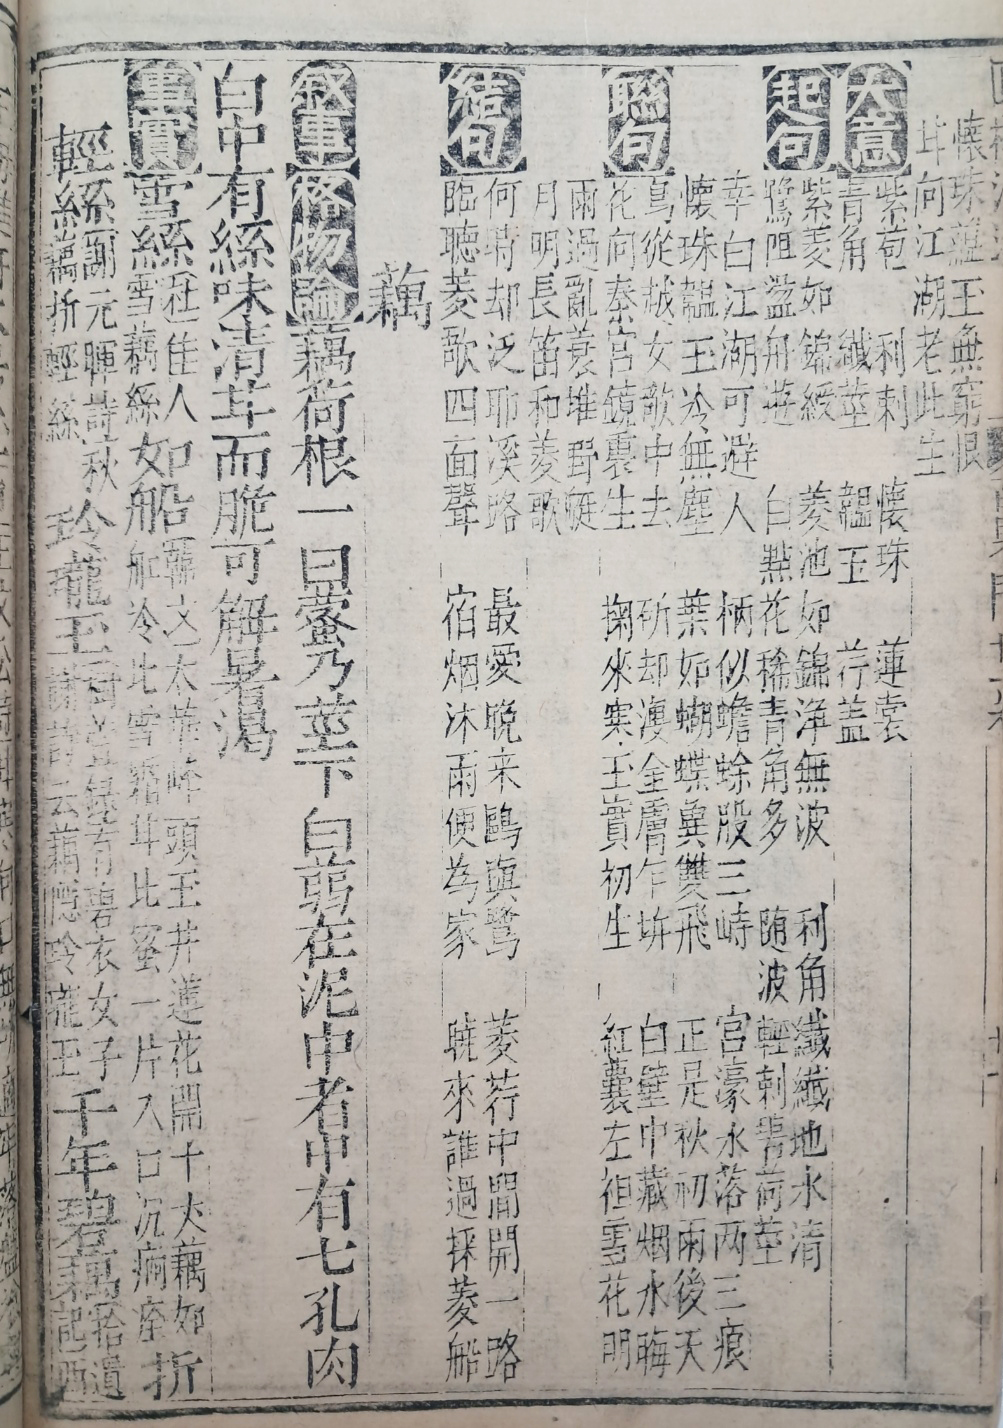 懷珠蘊玉無窮恨
甘向江湖老此生
大意
紫苞 利刺 懷珠 蓮裳
青角 纖莖 韞玉 荇盖
起句
紫菱如錦綬 菱池如錦淨無波 利角纖纖地水清
鷺咀遊 白㸃花稀青角多 随波輕刺荷莖
聯句
幸白江湖可避人 柄似蟾蜍股三峙 宫濠水落两三痕
懷珠韞玉冷無塵 葉如蝴蝶兾雙飛 正是秋初雨後天
爲從越女歌中去 斫却潭金膚乍坼 白璧中藏烟水晦
花向秦宫鏡裏生 掬來寒玉實初生 紅囊左袒雪花明
雨過亂蓑堆野艇
月明長笛和菱歌
結句
何時却泛耶溪路 最愛晚来鷗與鷺 菱荇中間開一路
臨聴菱歌四面聲 宿烟沐雨便為家 曉來誰過採菱船
藕
叙事 格物論 藕荷根一曰蔤乃莖下白蒻在泥中者中有七孔肉
白中有絲味清甘而脆可解暑渴
事實 雪絲 杜佳人雪藕絲 如船 韓文太華峰頭玉井蓮花開十丈藕如船冷比雪霜甘比蜜一片入口沉痾痊 折
輕絲 謝元暉詩秋藕折輕絲 玲瓏玉 有碧衣女子云藕隠玲瓏玉 千年碧藕 拾遺記西